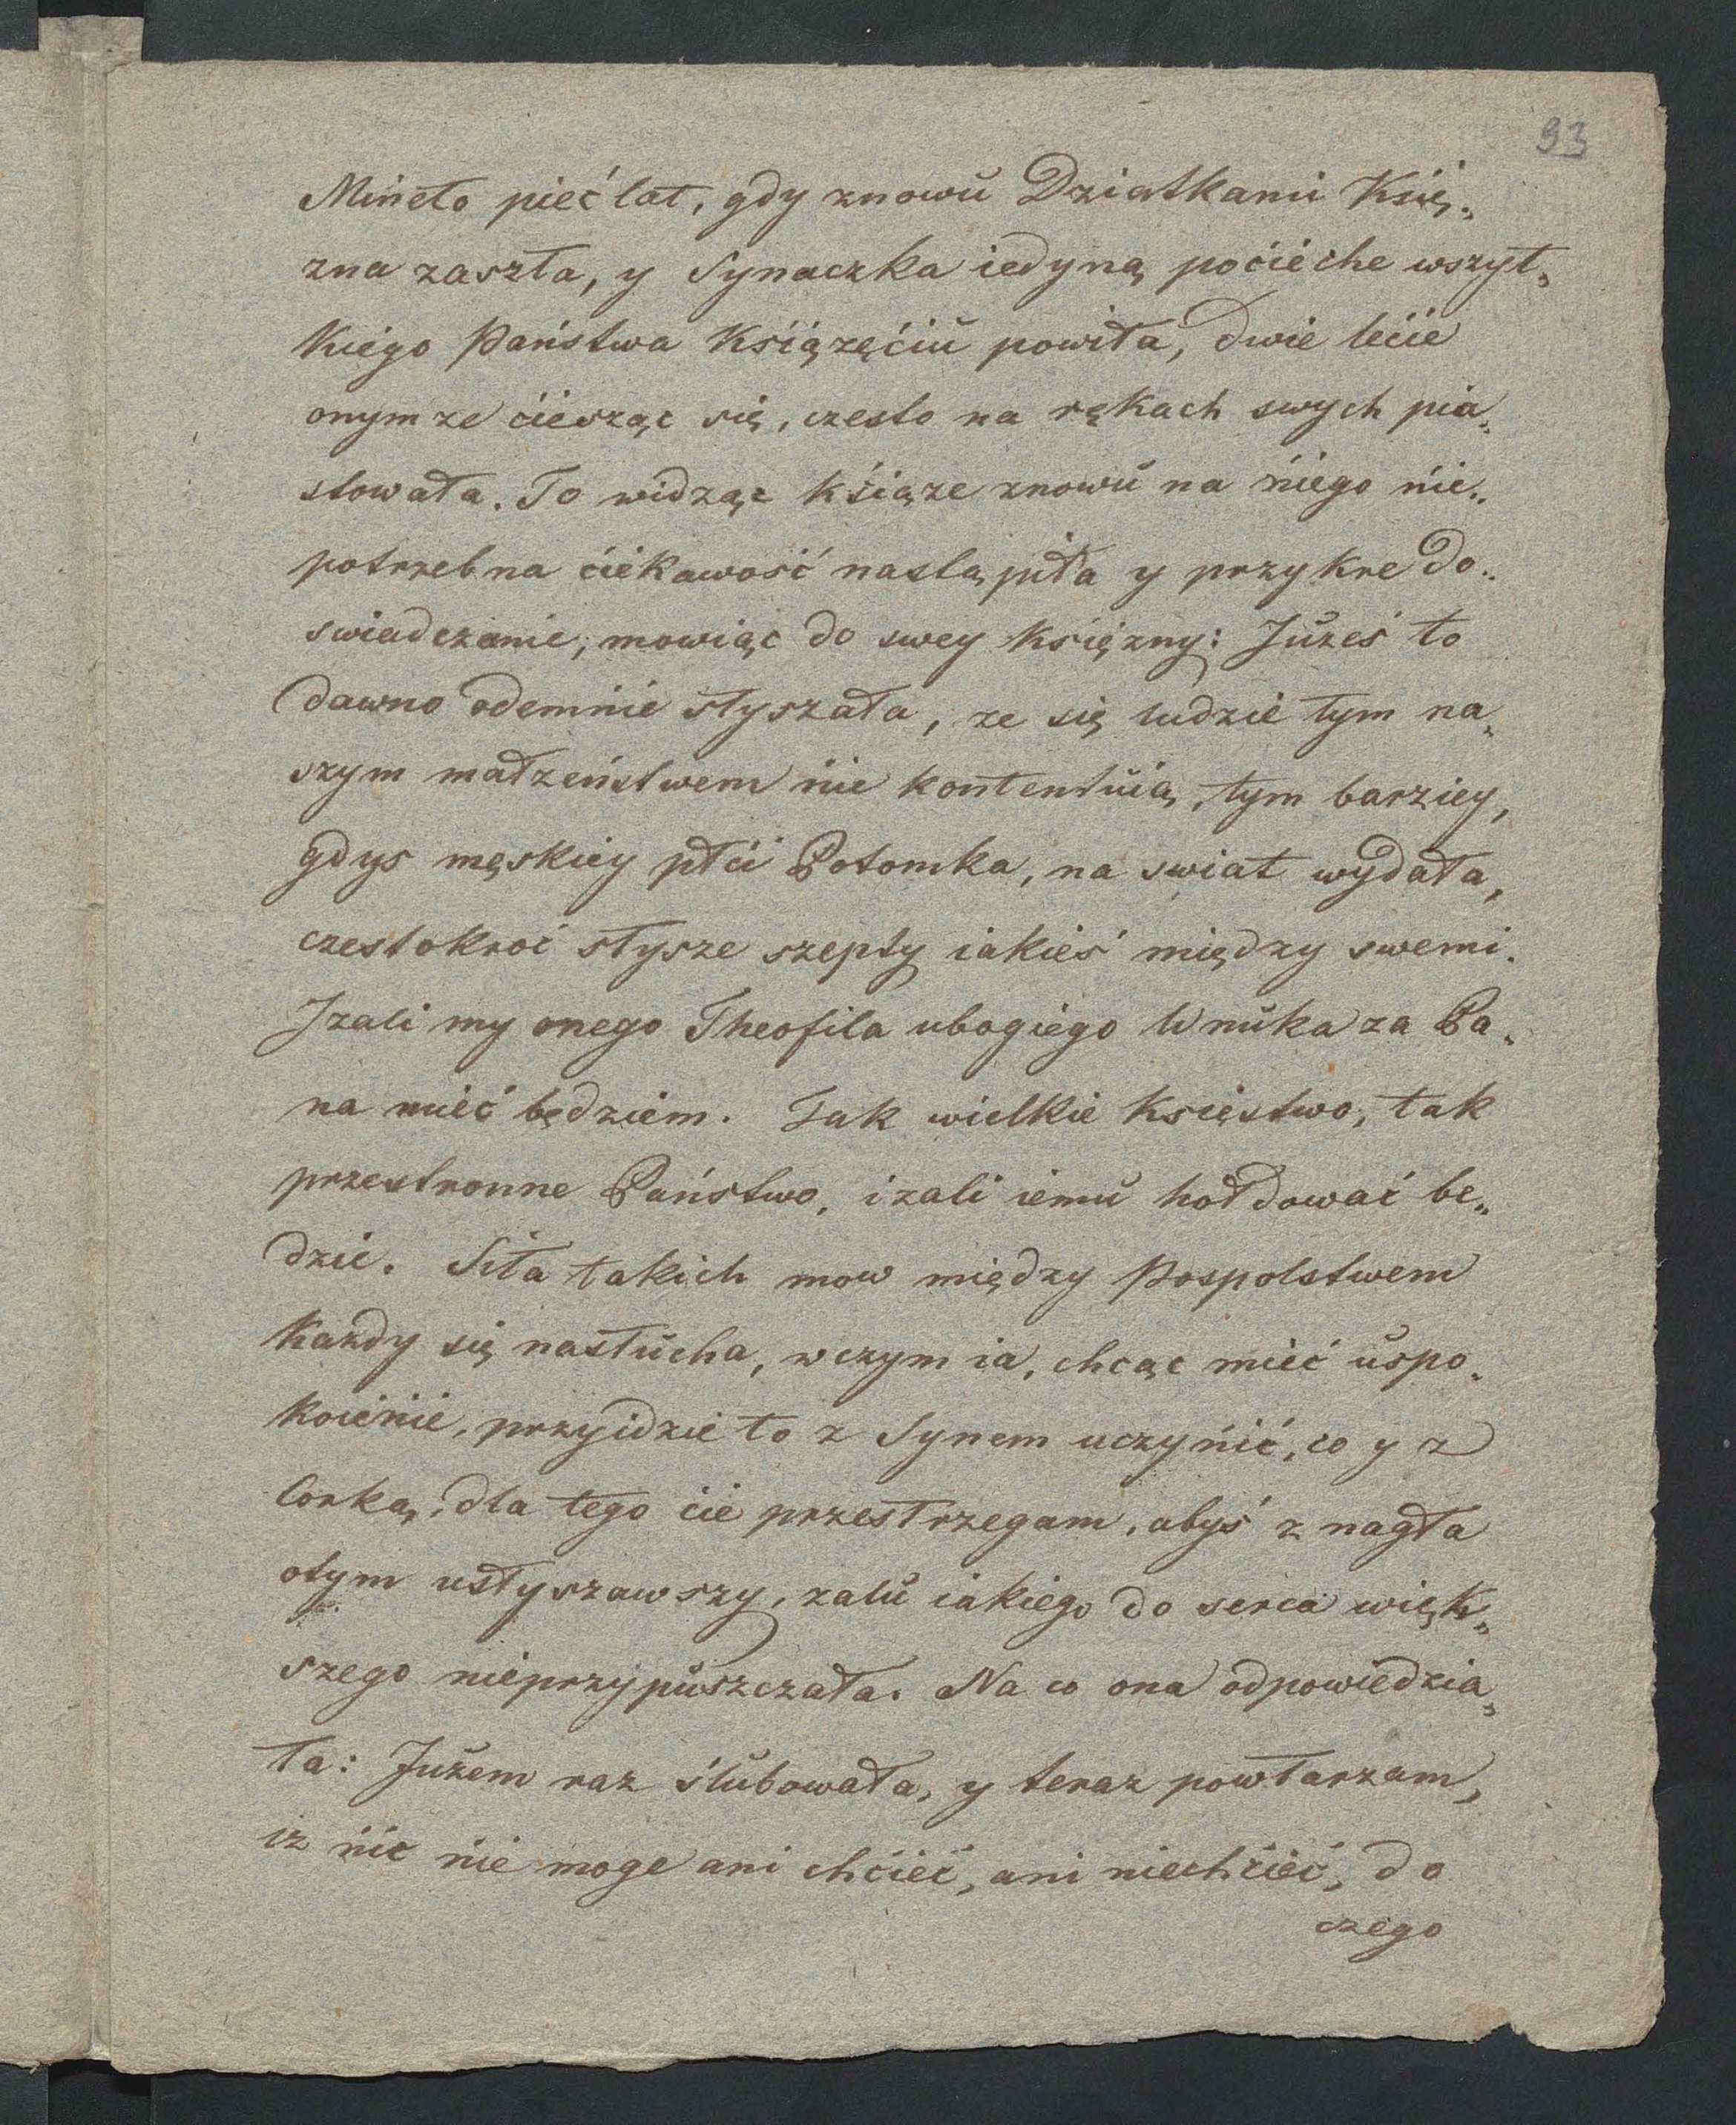 93
Mineło pieć lat, gdy znowu Dziatkami Księ„
zna zaszła, y Synaczka iedyną poćiéche wszyt„
kiego Państwa Ksiązęćiu powiła, dwie lećie
onymze ćiesząc się, czesto na rękach swych pia„
stowała. To widząc kśiąze znowu na ńiego nie„
potrzebna ćiekawość nastąpiła y przykre do„
swiadczanie, mowiąc do swey Księzny: Juześ to
dawno odemnie słyszała, ze się ludzie tym na„
szym małzeństwem nie kontentuią, tym barziey,
gdys męskiey płći Potomka, na swiat wydała,
czestokroć słysze szepty iakieś między swemi.
Jzali my onego Theofila ubogiego Wnuka za Pa„
na mieć będziem. Tak wielkie Księstwo, tak
przestronne Państwo, izali iemu hołdować be„
dzie. Siła takich mow między Pospolstwem
Kazdy się nasłucha, w czym ia, chcąc mieć uspo„
koienie, przyidzie to z Synem uczynić, co y z
Corką, dla tego cie przestrzegam, abyś z nagła
otym usłyszawszy, zalu iakiego do serca więk„
szego nieprzypuszczała. Na co ona odpowiedzia„
ła: Juzem raz ślubowała, y teraz powtarzam,
iz nic nie moge ani chćieć, ani niechćieć, do
czego